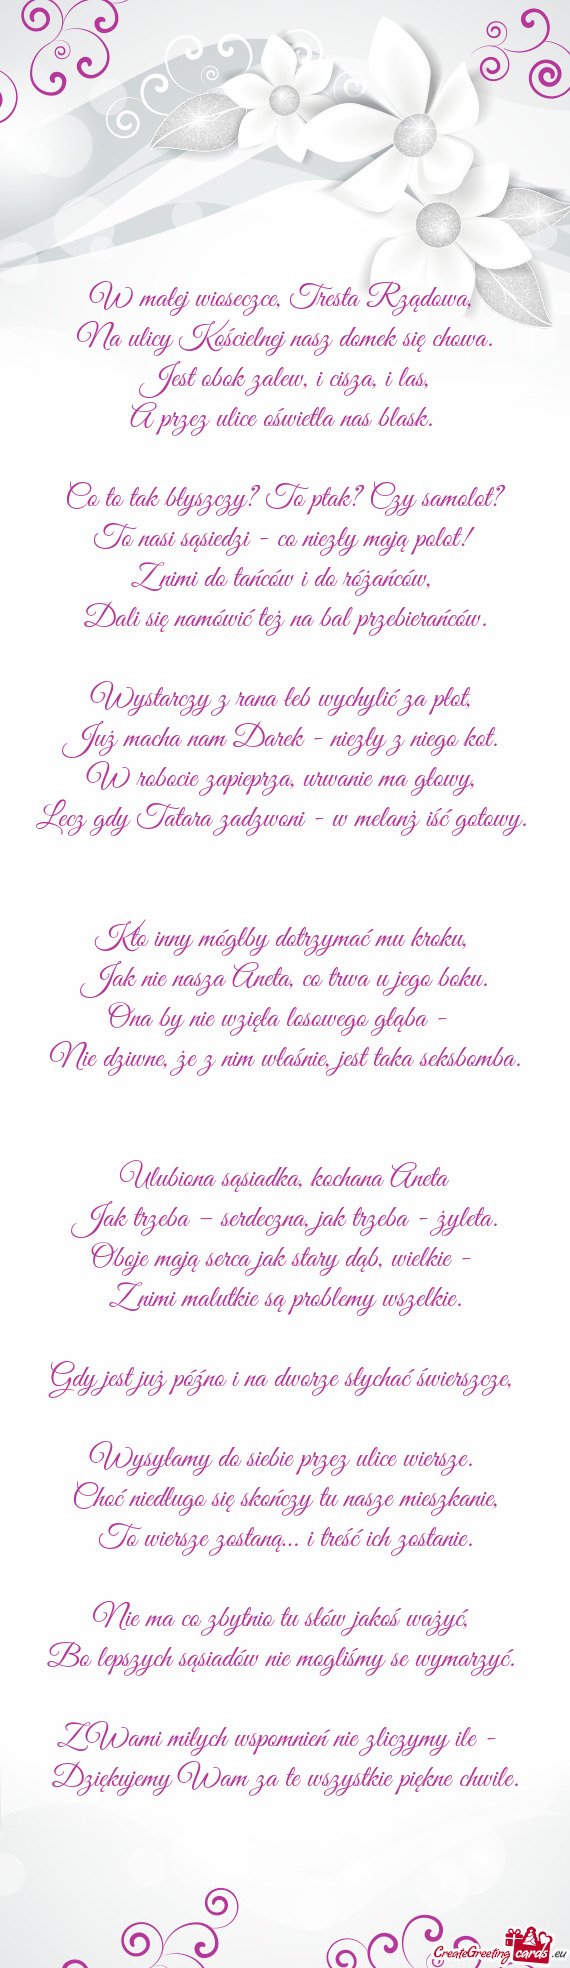 W małej wioseczce, Tresta Rządowa,
Na ulicy Kościelnej nasz domek się chowa.
Jest obok zalew, i cisza, i las,
A przez ulice oświetla nas blask.
Co to tak błyszczy? To ptak? Czy samolot?
To nasi sąsiedzi - co niezły mają polot!
Z nimi do tańców i do różańców,
Dali się namówić też na bal przebierańców.
Wystarczy z rana łeb wychylić za płot,
Już macha nam Darek - niezły z niego kot.
W robocie zapieprza, urwanie ma głowy,
Lecz gdy Tatara zadzwoni - w melanż iść gotowy.
Kto inny mógłby dotrzymać mu kroku,
Jak nie nasza Aneta, co trwa u jego boku.
Ona by nie wzięła losowego głąba -
Nie dziwne, że z nim właśnie, jest taka seksbomba.
Ulubiona sąsiadka, kochana Aneta
Jak trzeba – serdeczna, jak trzeba - żyleta.
Oboje mają serca jak stary dąb, wielkie -
Z nimi malutkie są problemy wszelkie.
Gdy jest już późno i na dworze słychać świerszcze,
Wysyłamy do siebie przez ulice wiersze.
Choć niedługo się skończy tu nasze mieszkanie,
To wiersze zostaną... i treść ich zostanie.
Nie ma co zbytnio tu słów jakoś ważyć,
Bo lepszych sąsiadów nie mogliśmy se wymarzyć.
Z Wami miłych wspomnień nie zliczymy ile -
Dziękujemy Wam za te wszystkie piękne chwile.
CreateGreeting cards .eu